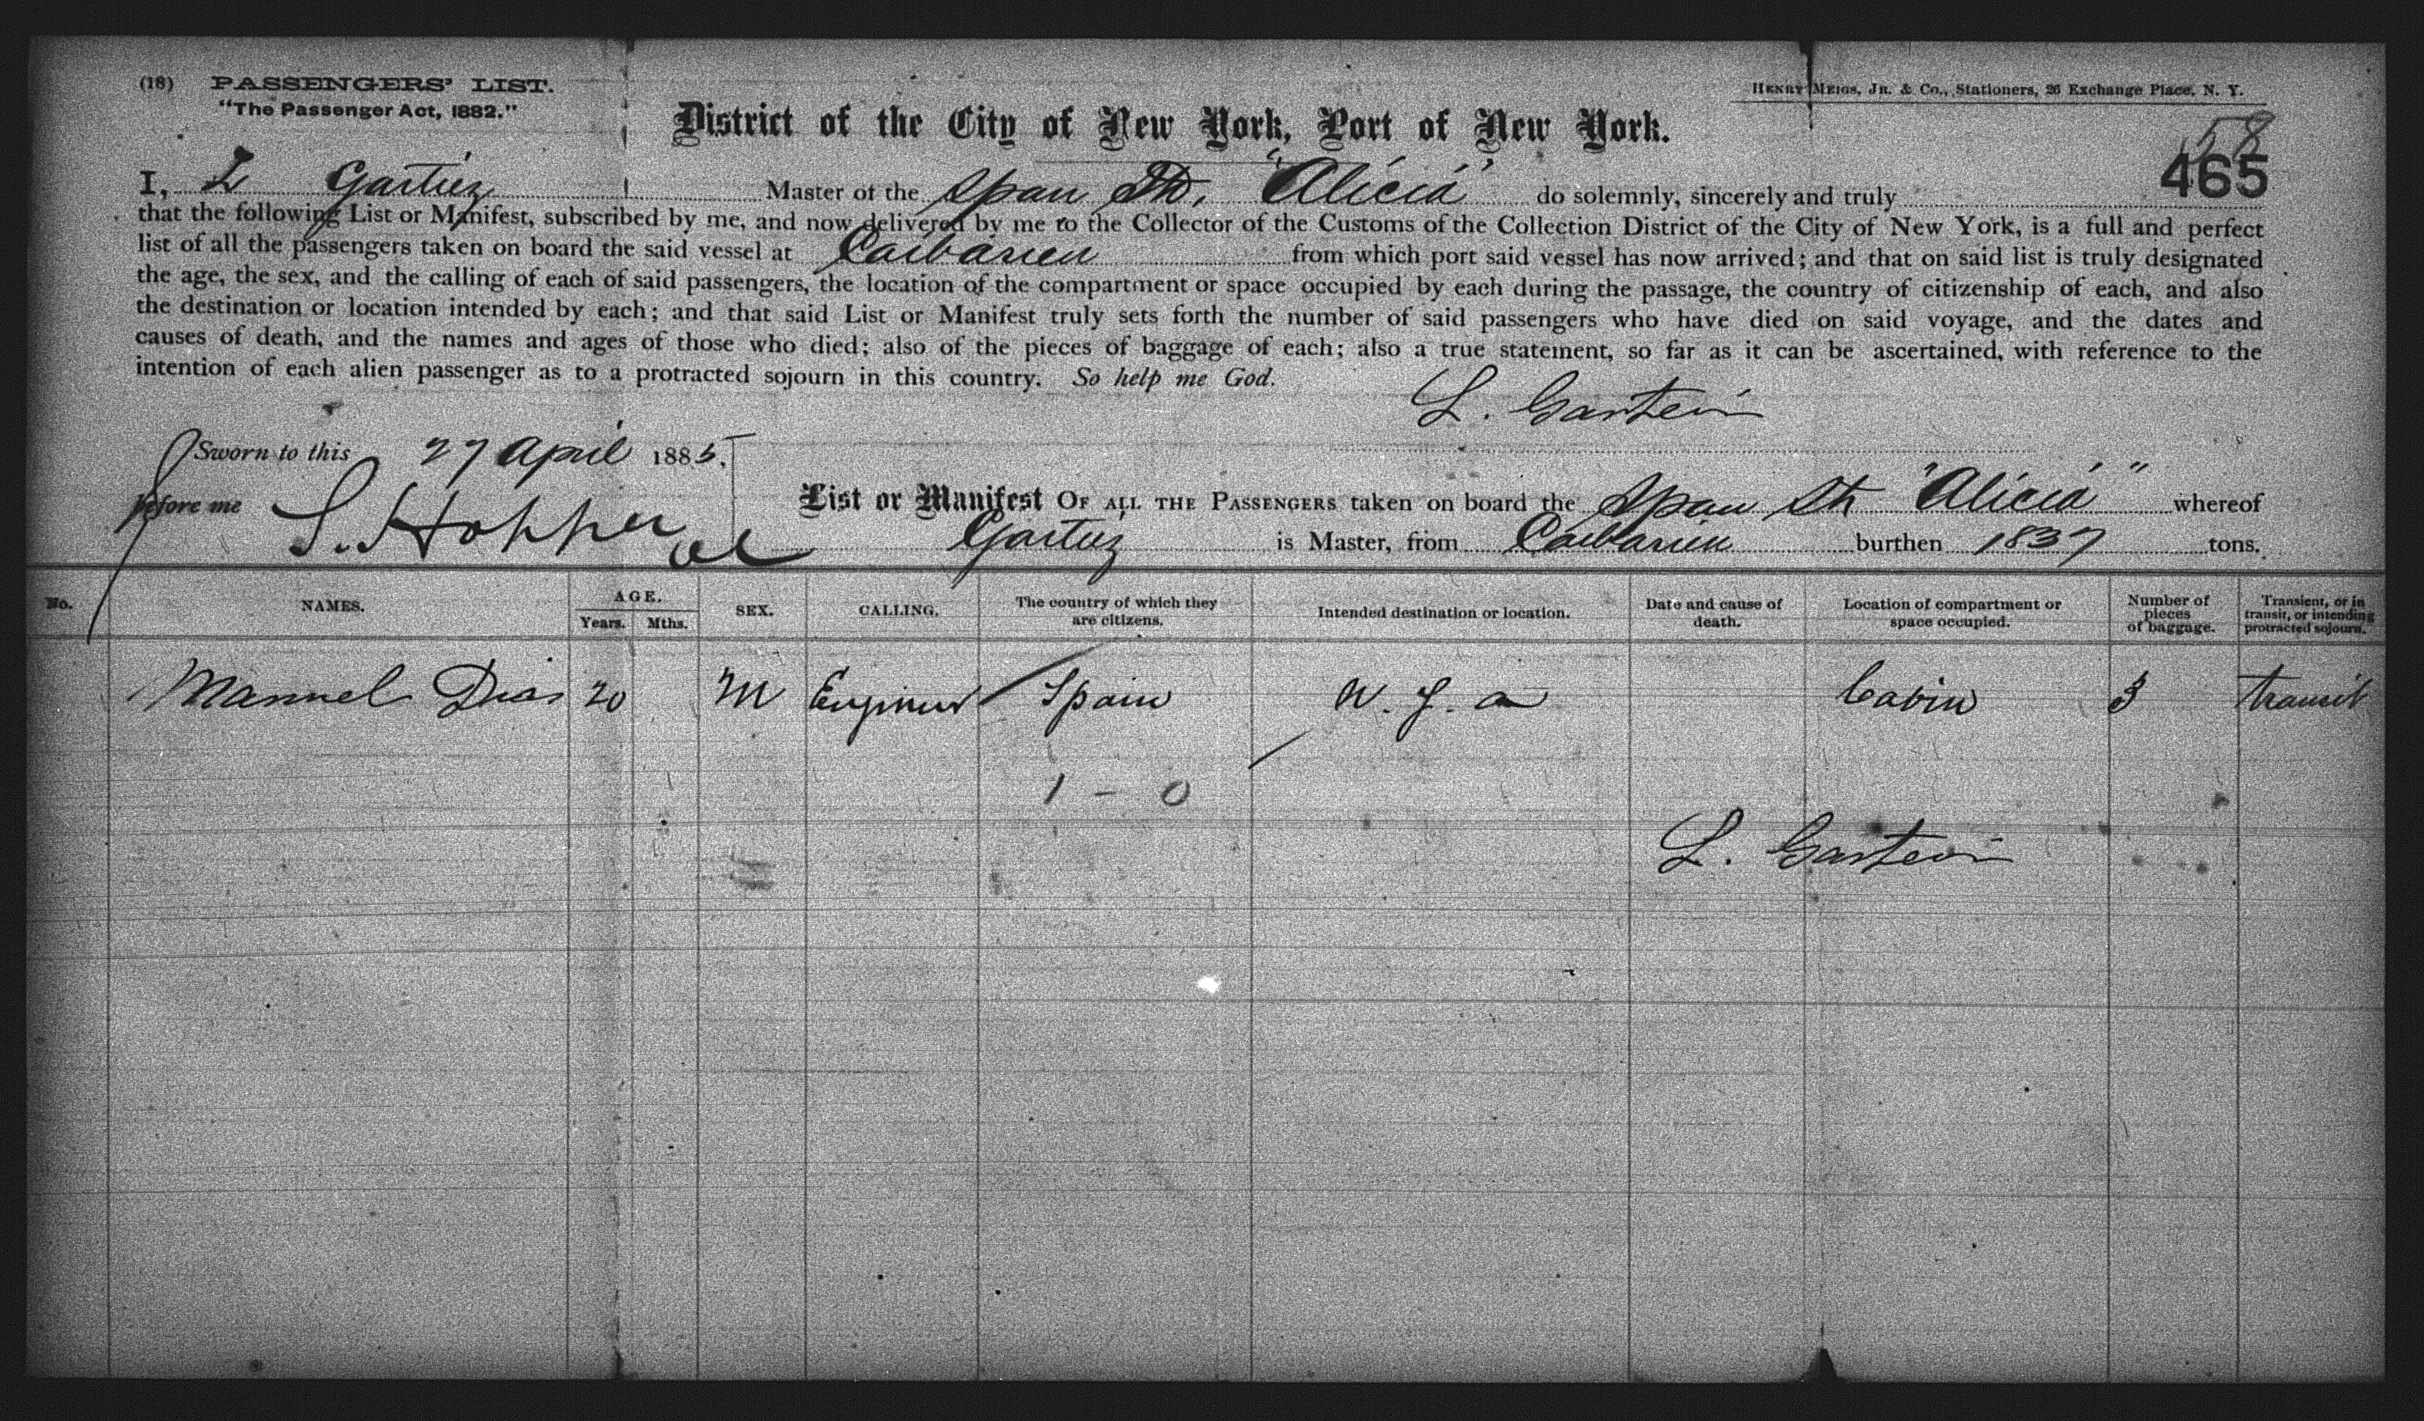 (18) PASSENGERS' LIST.
"The Passenger Act, 1882."
HENRY MEIGS, JR. & CO., Stationers, 26 Exchange Place, N. Y.
District of the City of New York, Port of New York.
58
465
I, L Gartiez Master of the Span Str. "Alicia" do solemnly, sincerely and truly
that the following List or Manifest, subscribed by me, and now delivered by me to the Collector of the Customs of the Collection District of the City of New York, is a full and perfect
list of all the passengers taken on board the said vessel at Caibarien from which port said vessel has now arrived; and that on said list is truly designated
the age, the sex, and the calling of each of said passengers, the location of the compartment or space occupied by each during the passage, the country of citizenship of each, and also
the destination or location intended by each; and that said List or Manifest truly sets forth the number of said passengers who have died on said voyage, and the dates and
causes of death, and the names and ages of those who died; also of the pieces of baggage of each; also a true statement, so far as it can be ascertained, with reference to the
intention of each alien passenger as to a protracted sojourn in this country. So help me God.
L.
Sworn to this 27 April 1885,
before me S. Hopper
List or Manifest OF ALL THE PASSENGERS taken on board the Span Str "Alicia" whereof
Gartiez is Master, from Caibarien burthen 1837 tons.
No. NAMES. AGE. Years. Mths. SEX. CALLING. The country of which they are citizens. Intended destination or location. Date and cause of death. Location of compartment or space occupied. Number of pieces of baggage. Transient, or in transit, or intending protracted sojourn.
Manuel Dias 20 M Engineer Spain Cabin 3 transit
1 - 0
L.